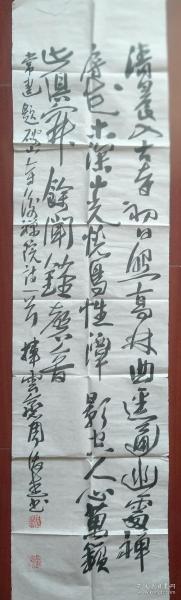 清晨入古寺初日照高林曲逕通幽處禪
房花木深山光悅鳥性潭影空人心萬籟
此俱寂餘聞鐘磬音
常建題破山寺後禪院詩一首 雲齋周書